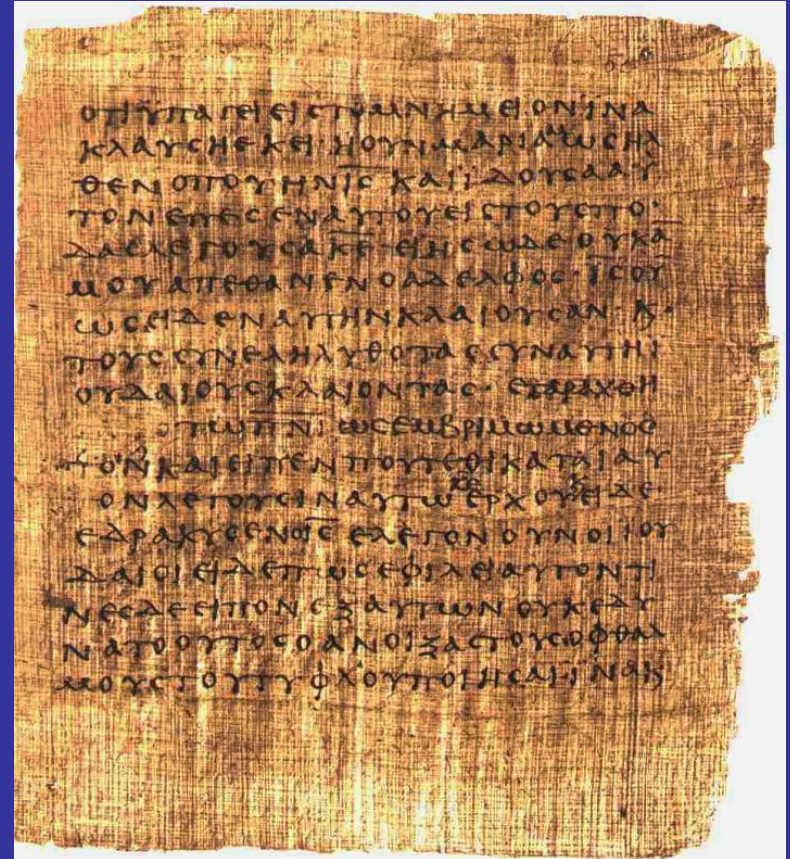 ΟΤΙΫΠΑΓΕΙΕΙϹΤΟΜΝΗΜΕΙΟΝΙΝΑ
ΚΛΑΥϹΗΕΚΕΙ·ΗΟΥΝΜΑΡΙΑΜΩϹΗΛ
ΘΕΝΟΠΟΥΗΝΙ̅Ϲ̅ΚΑΙΪΔΟΥϹΑΑΥ
ΤΟΝΕΠΕϹΕΝΑΥΤΟΥΕΙϹΤΟΥϹΠΟ·
ΔΑϹΛΕΓΟΥϹΑΚ̅Ε̅ΕΙΗϹΩΔΕΟΥΚΑ̅
ΜΟΥΑΠΕΘΑΝΕΝΟΑΔΕΛΦΟϹ·Ι̅Ϲ̅ΟΥ̅
ΩϹΕΙΔΕΝΑΥΤΗΝΚΛΑΙΟΥϹΑΝ·Κ·
ΤΟΥϹϹΥΝΕΛΗΛΥΘΟΤΑϹϹΥΝΑΥΤΗΙ
ΟΥΔΑΙΟΥϹΚΛΑΙΟΝΤΑϹ·ΕΤΑΡΑΧΘΗ
ΤΩΠ̅Ν̅Ι̅ΩϹΕΜΒΡΙΜΩΜΕΝΟϹ
ΚΑΙΕΙΠΕΝΠΟΥΤΕΘΙΚΑΤΑΙΑΥ
ΤΟΝΛΕΓΟΥϹΙΝΑΥΤΩΚ̅Ε̅ΕΡΧΟΥΚΕΙΔΕ·
ΕΔΡΑΚΥϹΕΝΟΙ̅Ϲ̅ΕΛΕΓΟΝΟΥΝΟΙΙΟΥ
ΔΑΙΟΙΕΙΔΕΠΩϹΕΦΙΛΕΙΑΥΤΟΝΤΙ
ΝΕϹΔΕΕΙΠΟΝΕΞΑΥΤΩΝΟΥΚΕΔΥ
ΝΑΤΟΟΥΤΟϹΟΑΝΟΙΞΑϹΤΟΥϹΟΦΘΑΛ
ΜΟΥϹΤΟΥΤΥΦΛΟΥΠΟΙΗϹΑΙΙΝΑΚ